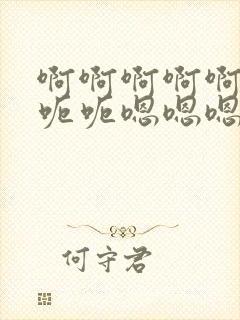 啊啊啊啊啊
呃呃嗯嗯嗯
何守君